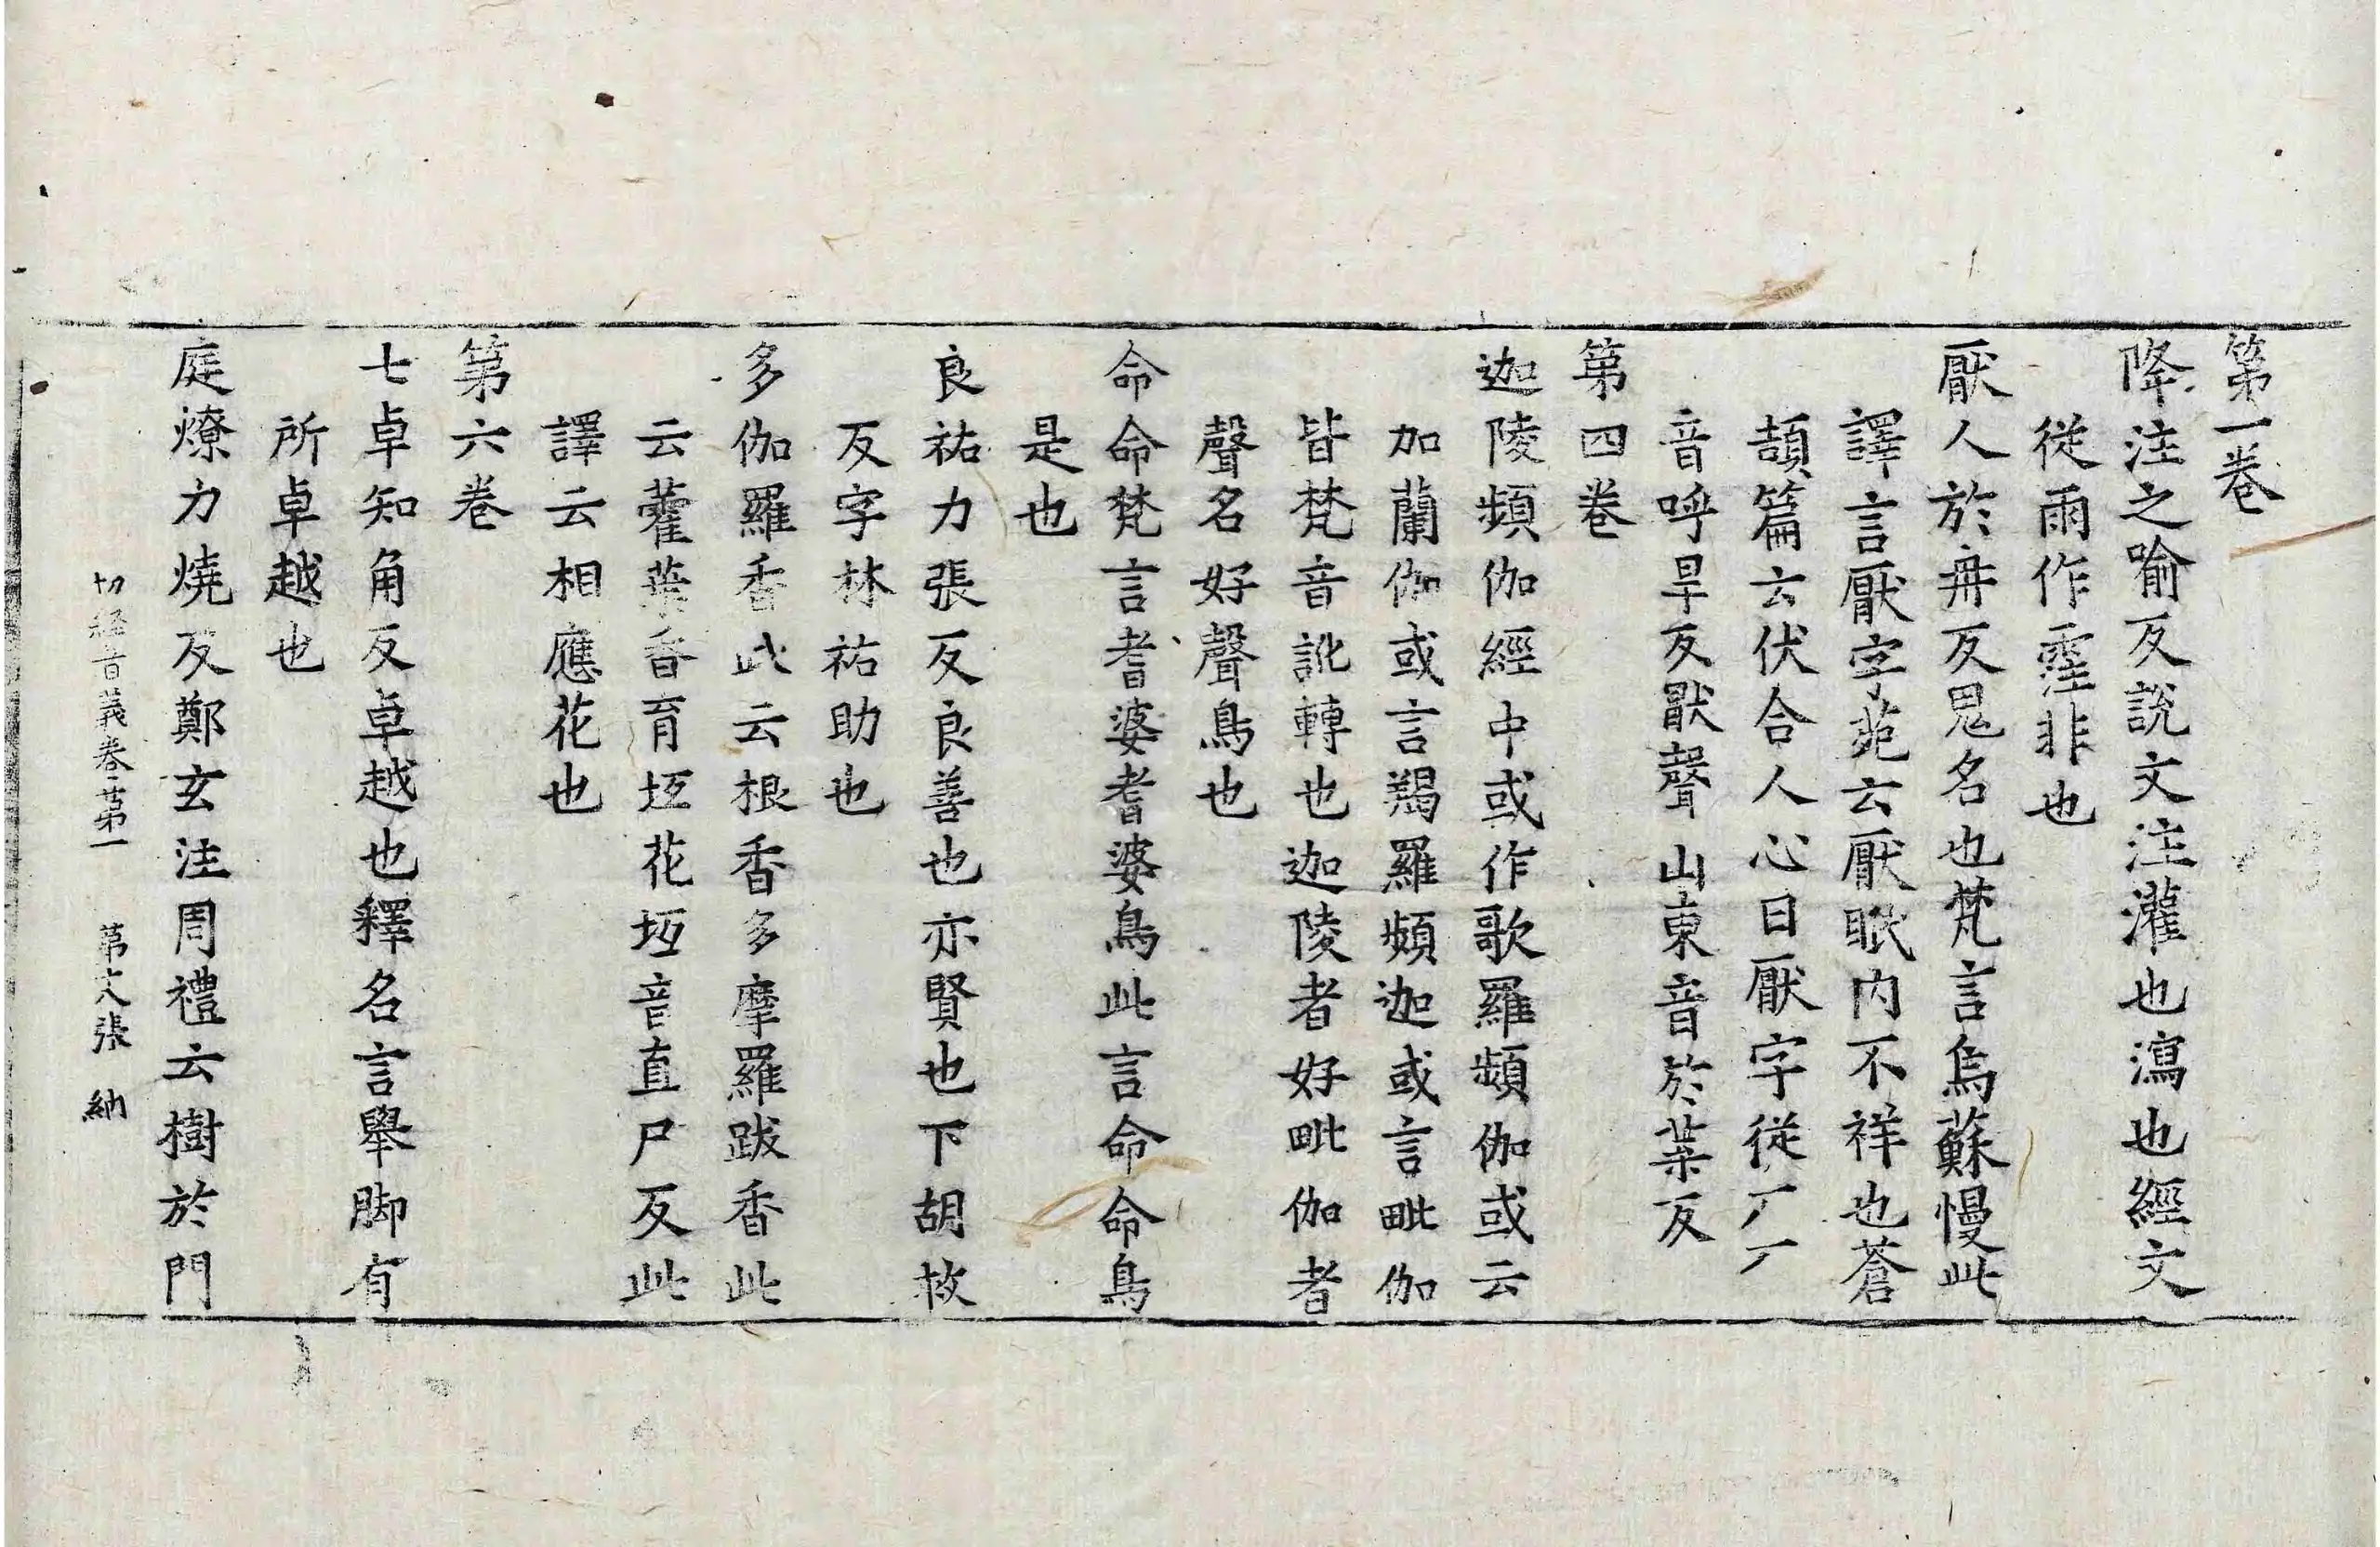 第一卷
降注之喻反說文注灌也瀉也經文
從雨作霔非也
厭人於冉反鬼名也梵言烏蘇慢此
譯言厭字苑云厭眠內不祥也蒼
頡篇云伏合人心曰厭字從厂厂
音呼旱反厭聲山東音於葉反
第四卷
迦陵頻伽經中或作歌羅頻伽或云
加蘭伽或言羯羅頻迦或言毗伽
皆梵音訛轉也迦陵者好毗伽者
聲名好聲鳥也
命命梵言耆婆耆婆鳥此言命命鳥
是也
良祐力張反良善也亦賢也下胡救
反字林祐助也
多伽羅香此云根香多摩羅跋香此
云藿葉香育坘花坘音直尸反此
譯云相應花也
第六卷
七卓知角反卓越也釋名言舉脚有
所卓越也
庭燎力燒反鄭玄注周禮云樹於門
切経音義卷第一 第六張 納